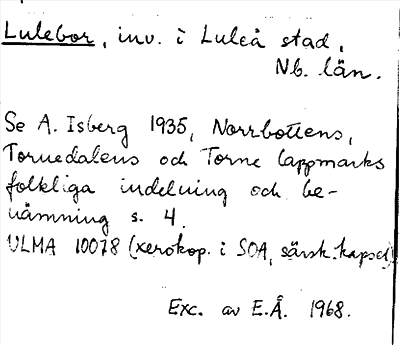 Lulebor, inv. i Luleå stad,
Nb. län.
Se A. Isberg 1935, Norrbottens,
Tornedalens och Torne lappmarks
folkliga indelning och be-
nämning s. 4.
ULMA 10078 (xerokop. i SOA, särsk. kapsel)
Exc. av E.Å. 1968.